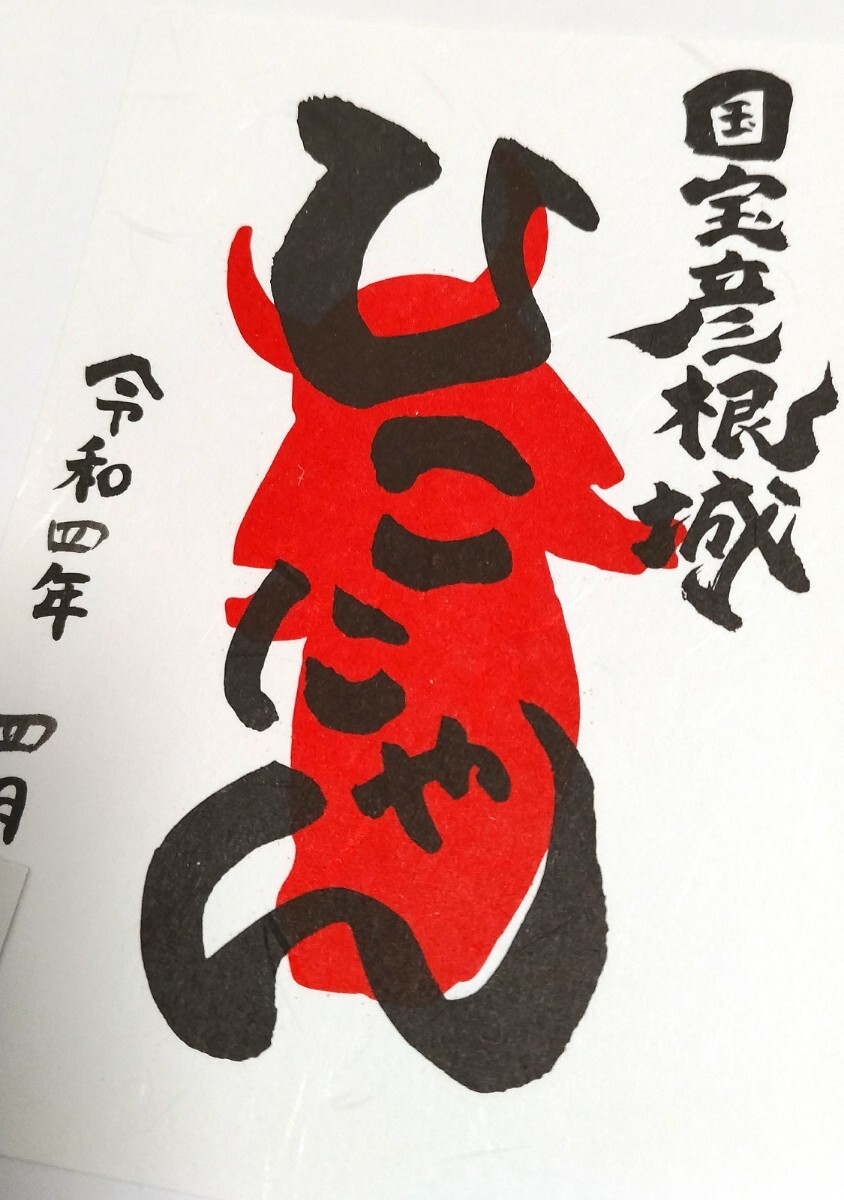 国宝彦根城
ひこにゃん
令和四年 四月